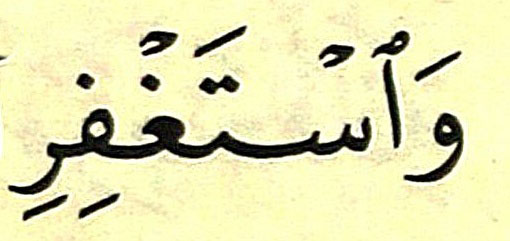 وَٱسْتَغْفِرِ